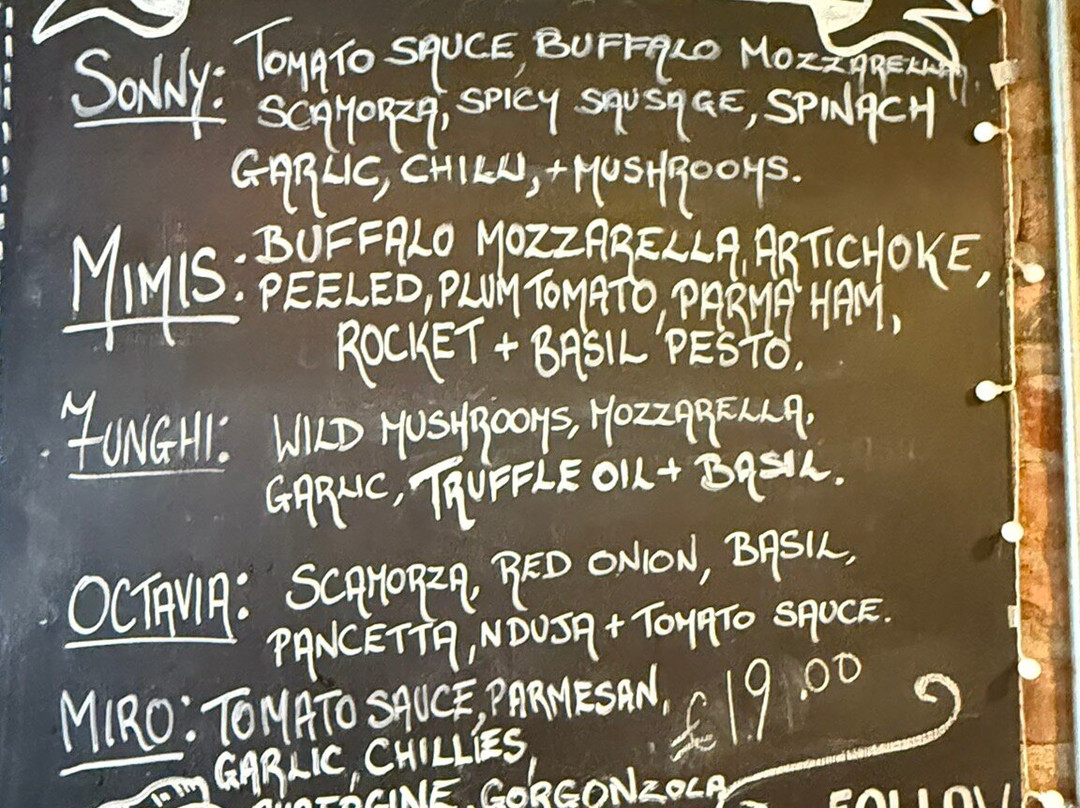 SONNY: TOMATO SAUCE, BUFFALO MOZZARELLA,
SCAMORZA, SPICY SAUSAGE, SPINACH
GARLIC, CHILLI, + MUSHROOMS.
MIMIS: BUFFALO MOZZARELLA, ARTICHOKE,
PEELED, PLUM TOMATO, PARMA HAM,
ROCKET + BASIL PESTO.
FUNGHI: WILD MUSHROOMS, MOZZARELLA,
GARLIC, TRUFFLE OIL + BASIL.
OCTAVIA: SCAMORZA, RED ONION, BASIL,
PANCETTA, NDUJA + TOMATO SAUCE.
MIRO: TOMATO SAUCE, PARMESAN, £19.00
GARLIC, CHILLIES,
GORGONZOLA
FOLLOW